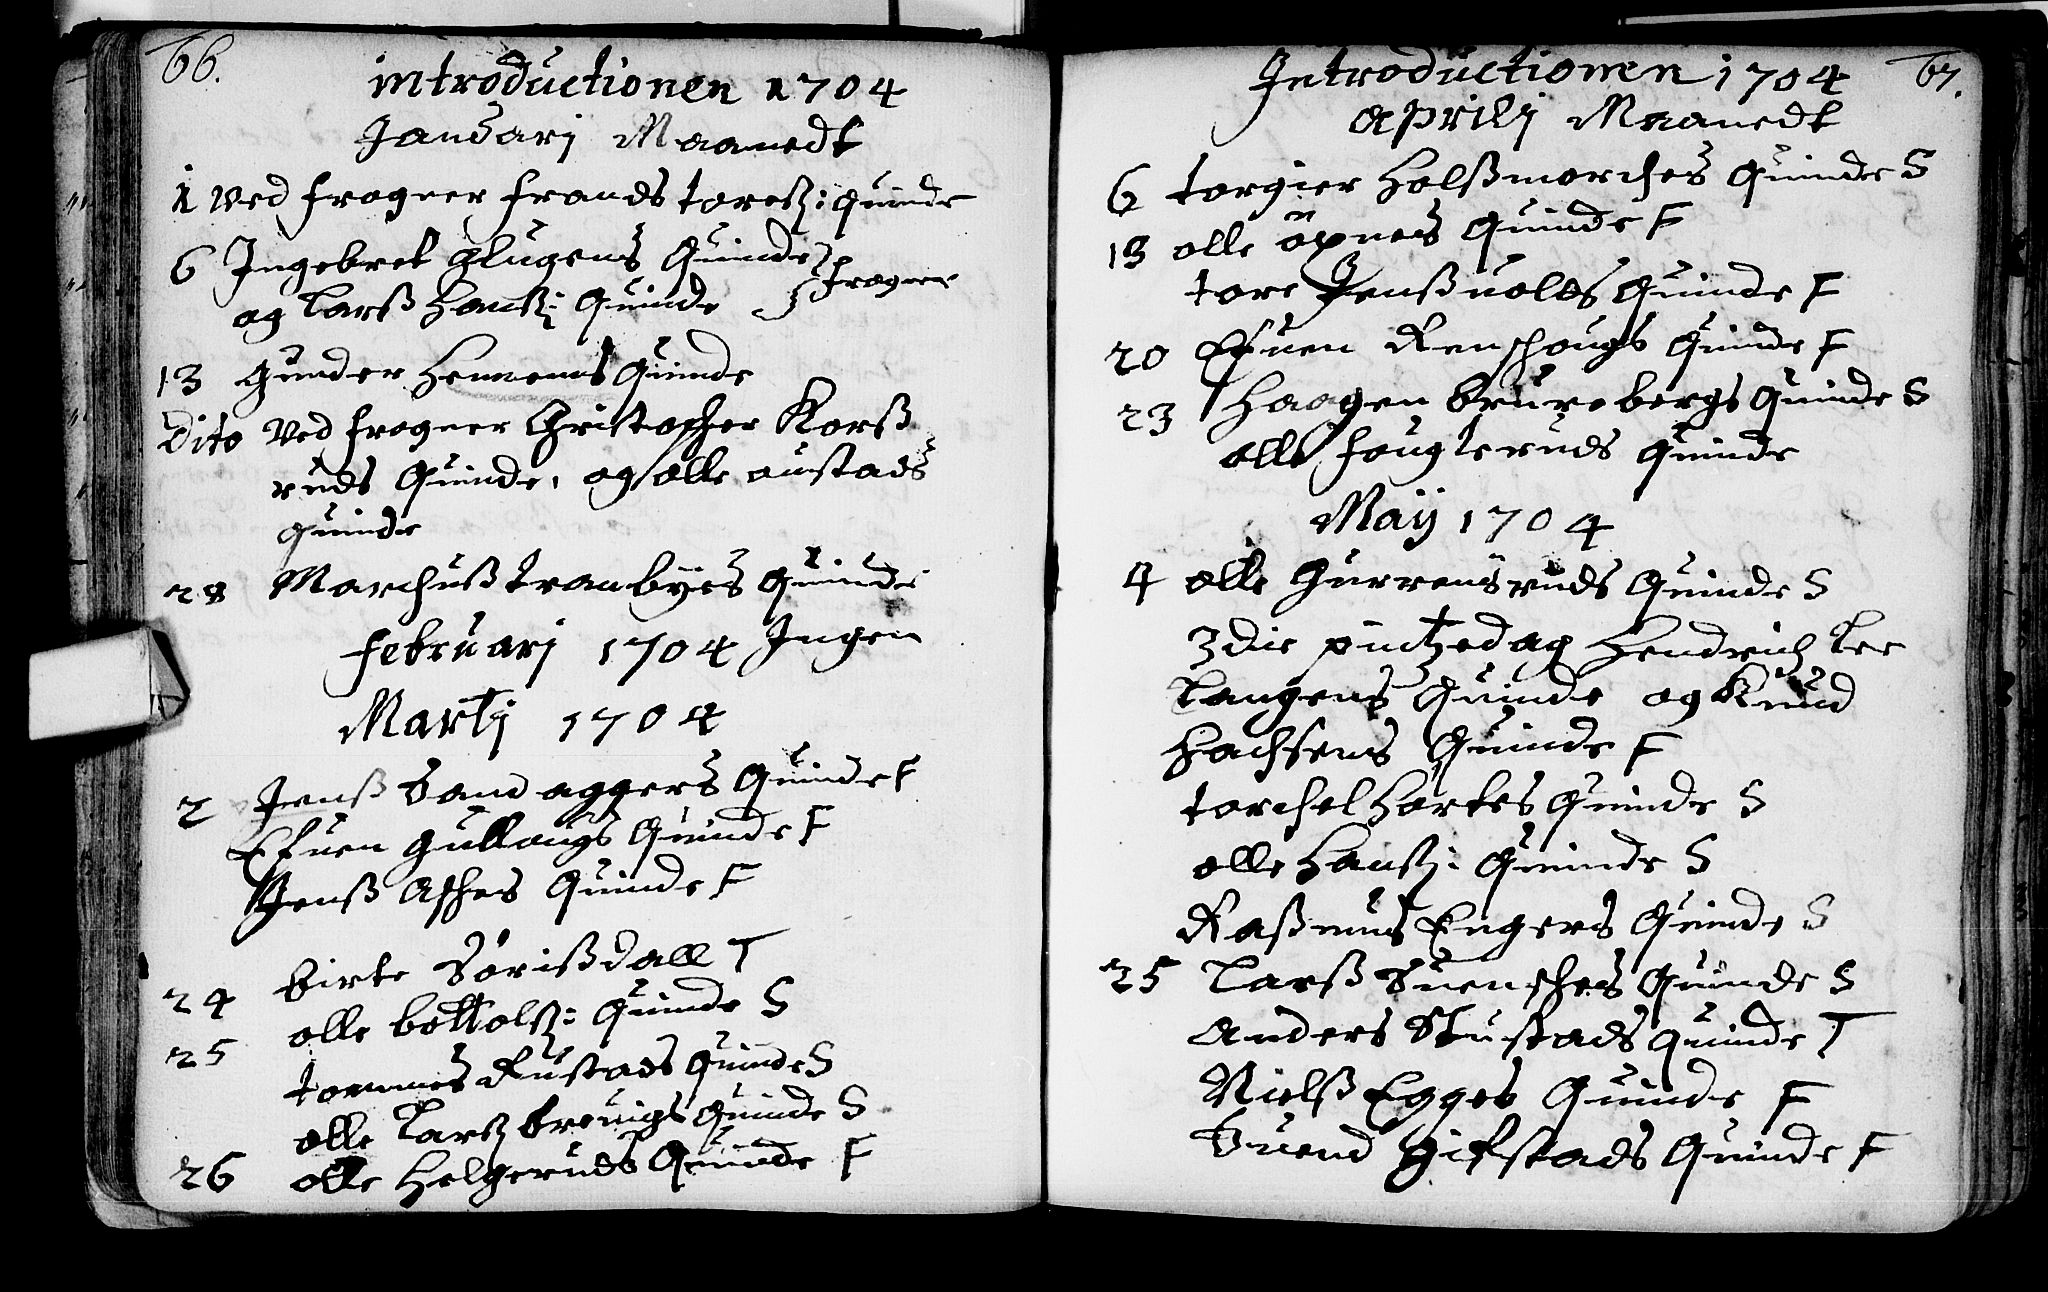 66.
introductionen 1704
Januarj Maanedt
1 Ved frogner frands toreß: quinde
6 Ingebret Glugens Quinde
og Larß Hanß: Quinde } frogner
13 Gunder Hennems Quinde
Dito Ved frogner Christopher Korß
ruds Quinde, og olle austads
quinde
28 Marchuß tranbÿes Quinde
februarj 1704 Ingen
Martj 1704
2 Jenß Sand aggers Quinde F
Efuen gullaugs Quinde F
Jenß Askes Quinde F
24 birte Sørißdall T
25 olle bottolß: Quinde S
tommes Rustads Quinde S
olle Larß treuigs Quinde S
26 olle Helgeruds Quinde F
67.
Introductionen 1704
Aprilj Maanedt
6 torgier Holßmorches Quinde S
13 olle öxnes Quinde F
tore Jenßuolds Quinde F
20 Efuen Renschougs Quinde F
23 Haagen brurebergs Quinde S
olle fougleruds Quinde
Maÿ 1704
4 olle Gurrensruds Quinde S
3die pintzedag Hendrich Lee
Langens Quinde og Knud
Hachsens Quinde F
torchel Hortes Quinde S
olle Hanß: Quinde S
Raßmus Engers Quinde S
25 Larß Suensches Quinde S
Anders Stustads Quinde T
Nielß Egges Quinde F
Suend Gifstads Quinde F